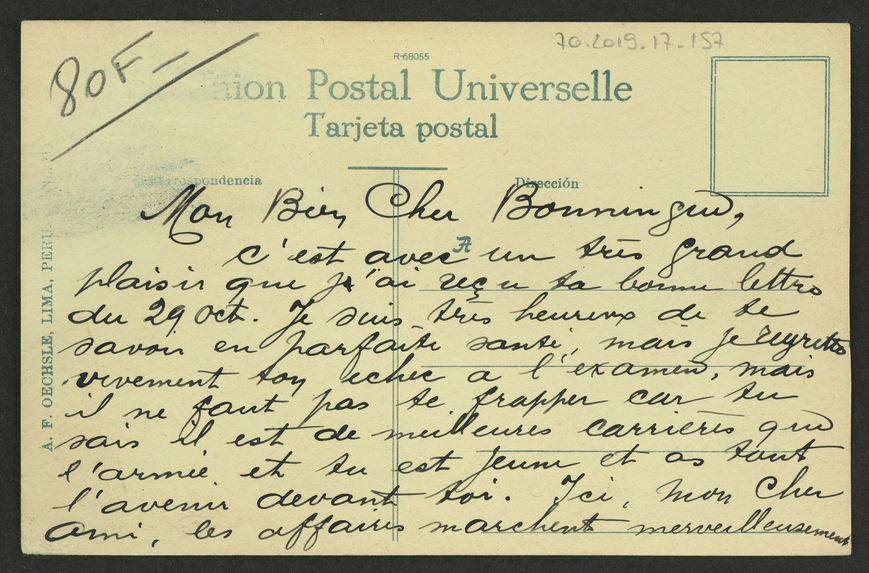 70.2019.17.157
80F-
R-68055
Union Postal Universelle
Tarjeta postal
Correspondencia
Dirección
A. F. OECHSLE, LIMA, PERU.
A
Mon Bien Cher
c'est avec un très grand
plaisir que j'ai reçu ta bonne lettre
du 29 Oct. Je suis très heureux de te
savoir en parfaite santé, mais je regrette
vivement ton echec a l'examen, mais
il ne faut pas te frapper car tu
sais il est de meilleures carrières que
l'armée et tu est jeune et as tout
l'avenir devant toi. Ici, mon Cher
Ami, les affaires marchent merveilleusement